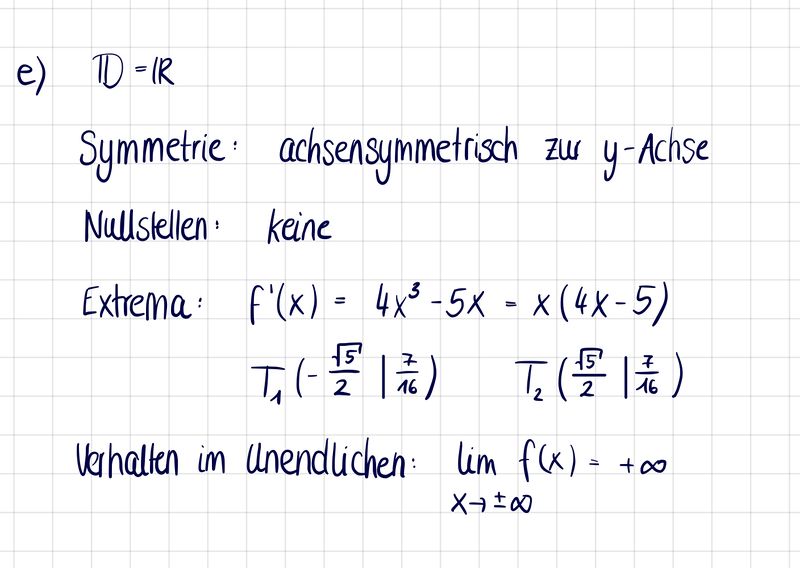 e) 𝔻 = ℝ
Symmetrie: achsensymmetrisch zur y-Achse
Nullstellen: keine
Extrema: f'(x) = 4x³ - 5x = x(4x - 5)
T₁(-√5/2 | 7/16) T₂(√5/2 | 7/16)
Verhalten im Unendlichen: lim f(x) = +∞
x→±∞